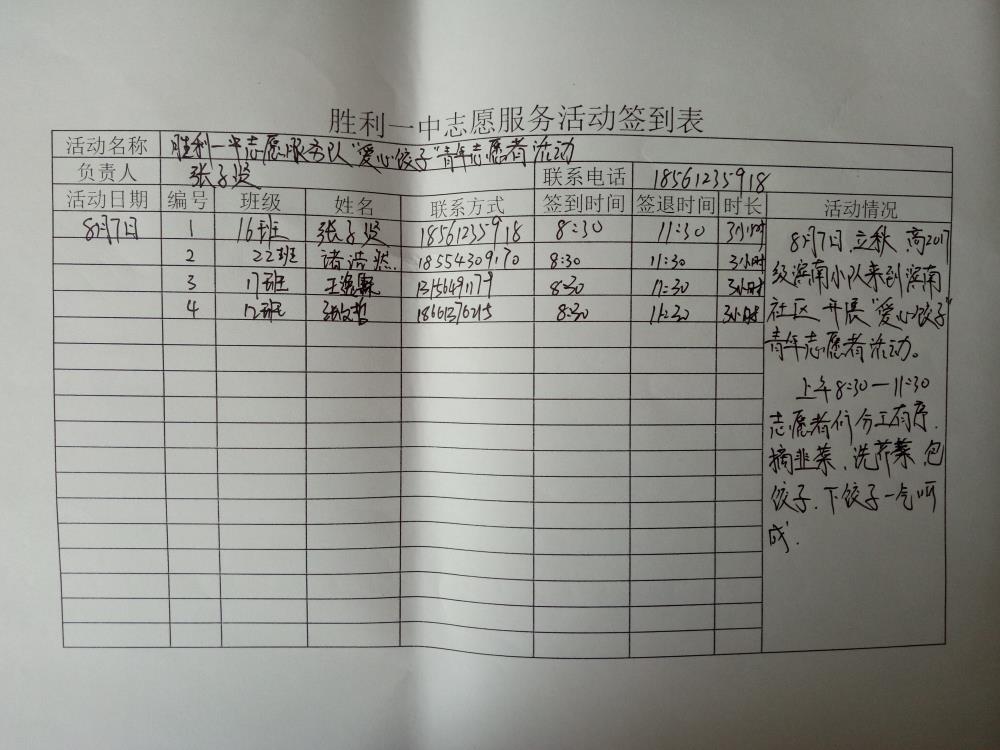 胜利一中志愿服务活动签到表
活动名称 胜利一中志愿服务队“爱心饺子”青年志愿者活动
负责人 张子 联系电话 18561235918
活动日期 编号 班级 姓名 联系方式 签到时间 签退时间 时长 活动情况
8月7日 1 16班 张子 18561235918 8:30 11:30 3小时
2 22班 诸浩然 18554309170 8:30 11:30 3小时
3 17班 王 13156491179 8:30 11:30 3小时
4 12班 张文哲 18661376215 8:30 11:30 3小时
8月7日,立秋,高2017
级滨南小队来到滨南
社区开展“爱心饺子”
青年志愿者活动。
上午8:30—11:30
志愿者们分工有序,
摘韭菜、洗芹菜、包
饺子、下饺子一气呵
成.